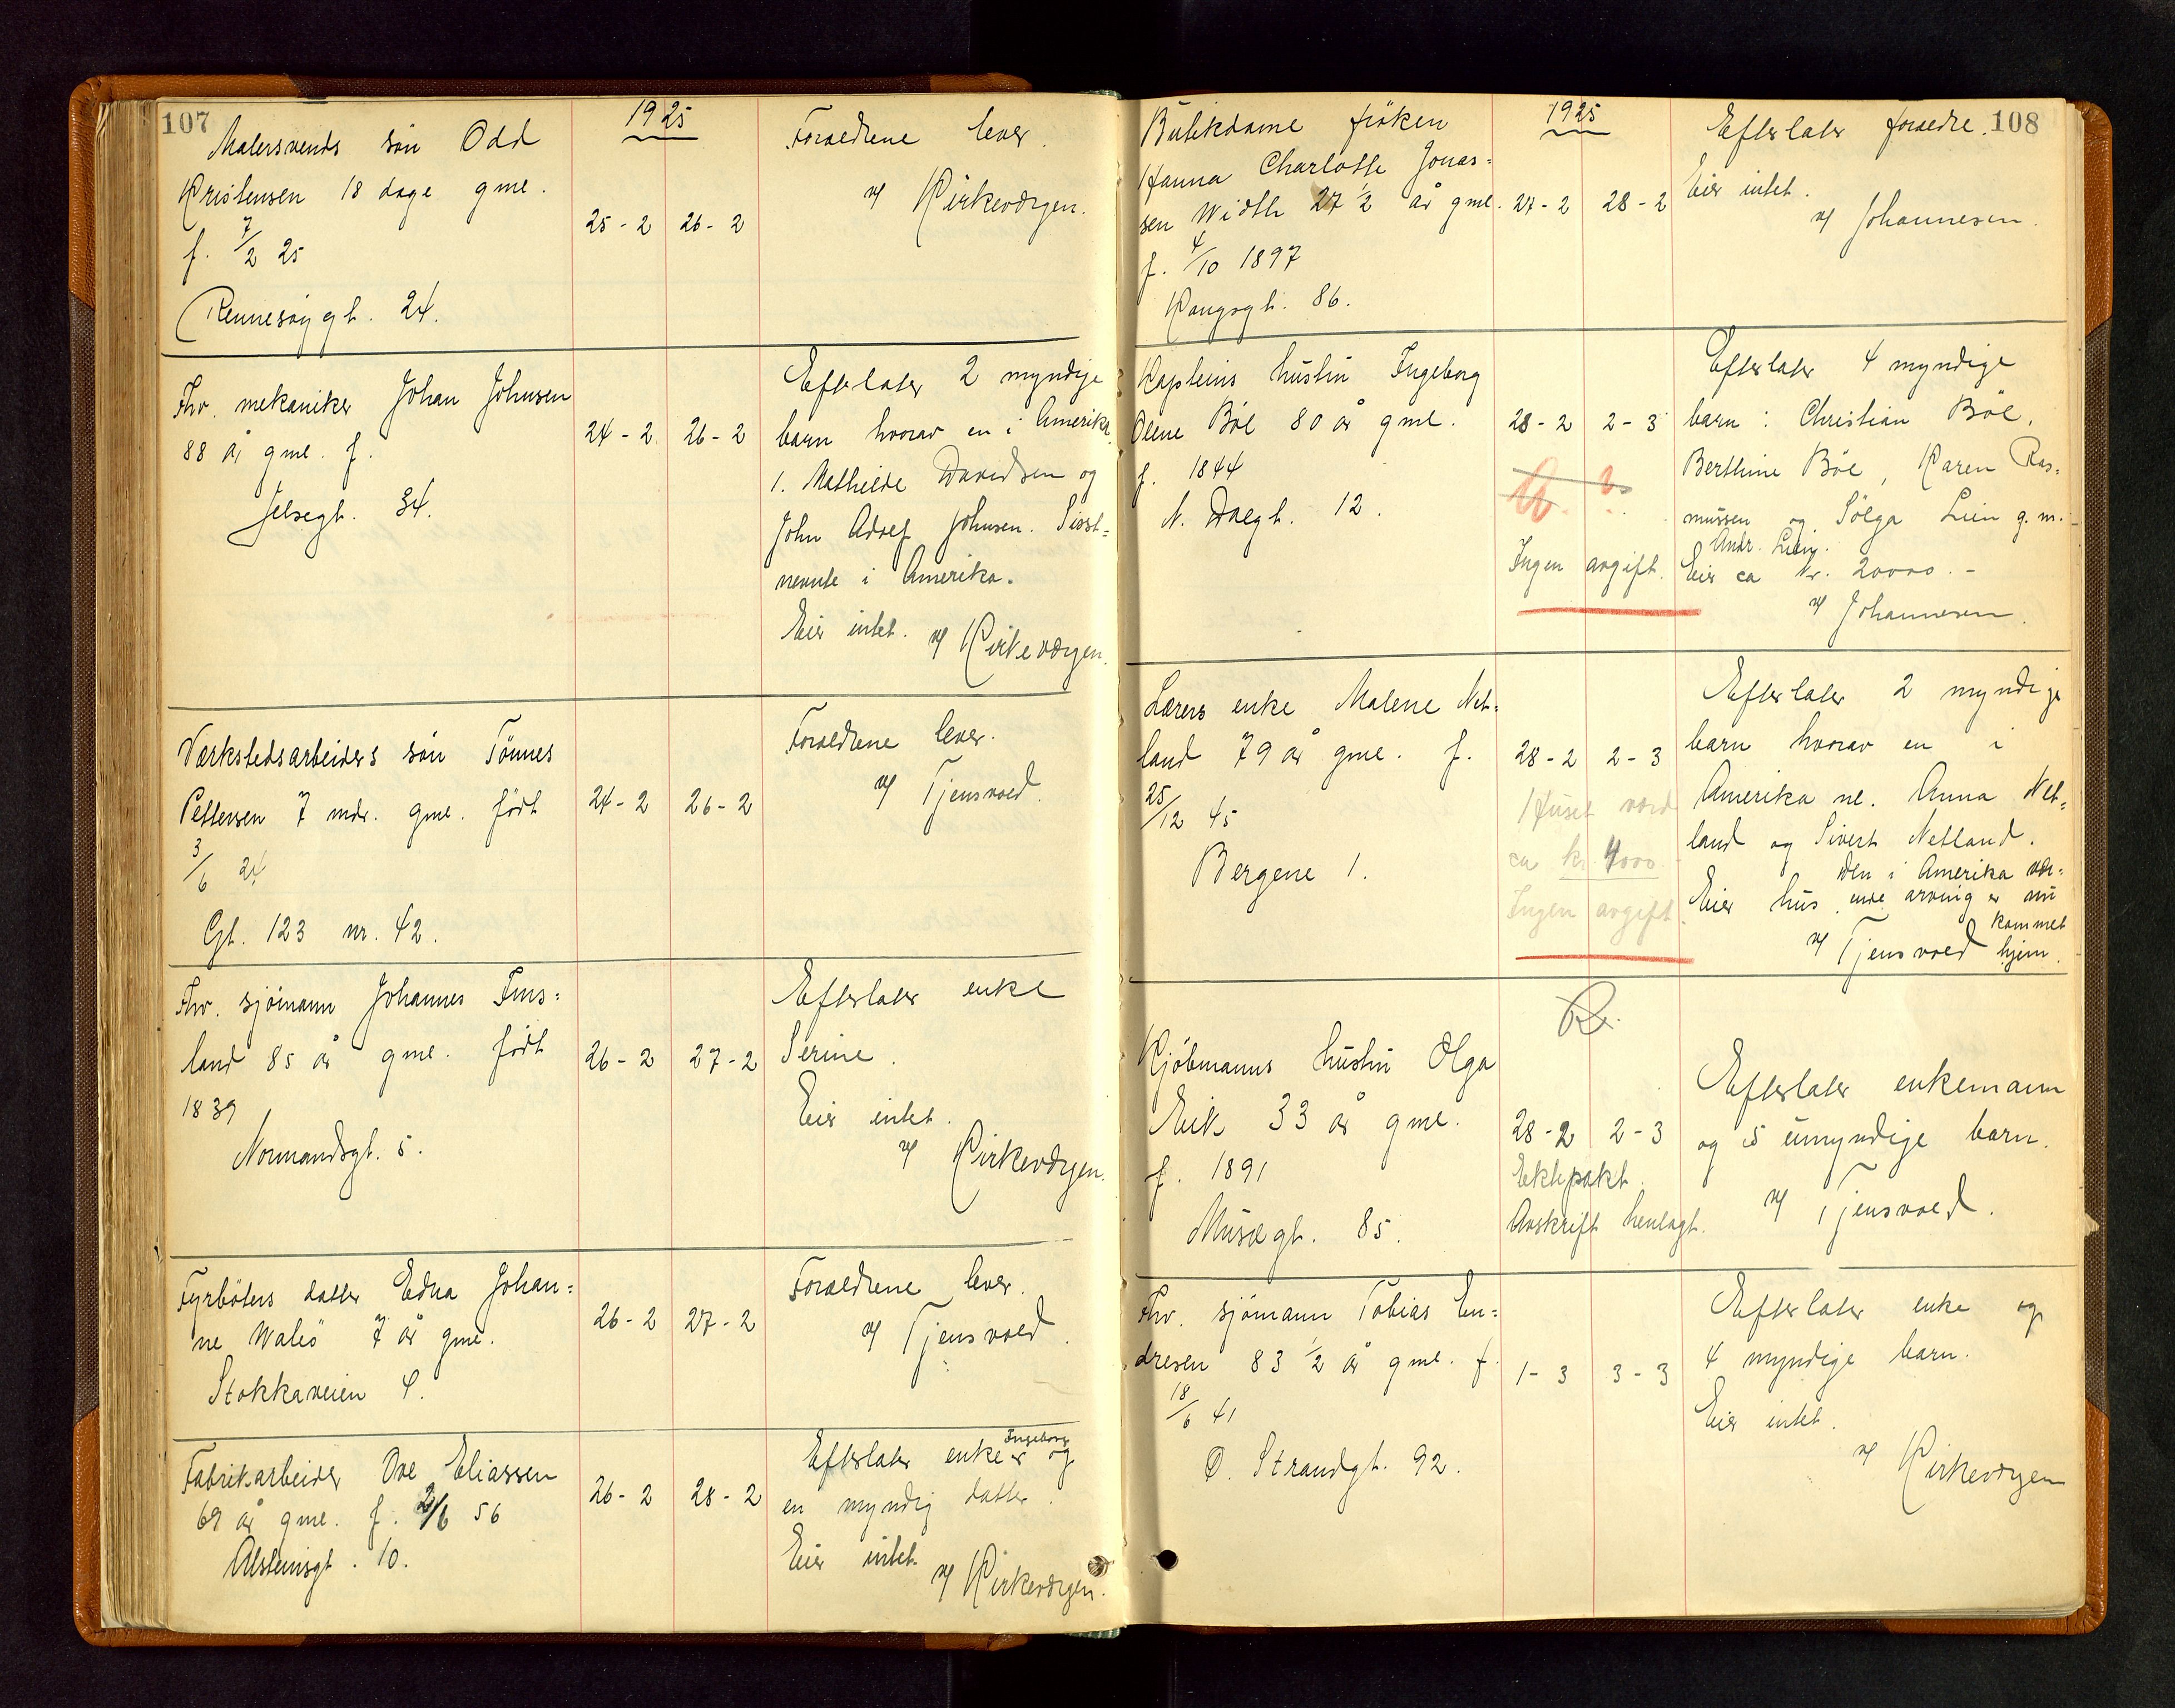 107
1925
Malersvends sön Odd
Kristensen 18 dage gml.
f. 7/2 25
Rennesöygt. 24.
25-2 26-2
Foreldrene lever.
v/ Kirkeværgen.
Fhv. mekaniker Johan Johnsen
88 år gml. f.
Jelsegt. 34.
24-2 26-2
Efterlater 2 myndige
barn hvorav en i Amerika.
1. Mathilde Davidsen og
John Adolf Johnsen. Sisst=
nevnte i Amerika.
Eier intet. v/ Kirkeværgen.
Værkstedsarbeiders sön Tönnes
Pettersen 7 mdr. gml. född
3/6 24
Gt. 123 nr. 42.
24-2 26-2
Foreldrene lever.
v/ Tjensvold.
Fhv. sjömann Johannes Fins=
land 85 år gml. född
1839
Normandsgt. 5.
26-2 27-2
Efterlater enke
Serine.
Eier intet.
v/ Kirkeværgen.
Fyrböters datter Edna Johan=
ne Walsö 7 år gml.
Stokkaveien 4.
26-2 27-2
Foreldrene lever.
v/ Tjensvold.
Fabrikarbeider Ove Eliassen
69 år gml. f. 2/6 56
Alsteinsgt. 10.
26-2 28-2
Ingeborg
Efterlater enke og
en myndig datter.
Eier intet.
v/ Kirkeværgen.
108
1925
Butikdame fröken
Hanna Charlotte Jonas=
sen Width 27 1/2 år gml.
f. 4/10 1897
Kongsgt. 86.
27-2 28-2
Efterlater foreldre.
Eier intet.
v/ Johannesen.
Kapteins hustru Ingeborg
Olene Böe 80 år gml.
f. 1844
N. Dalgt. 12.
28-2 2-3
Ingen avgift.
Efterlater 4 myndige
barn: Christian Böe,
Berthine Böe, Karen Ras=
mussen og Sölga Lien g.m.
Andr. Lien.
Eier ca kr. 20000.-
v/ Johannesen.
Lærers enke Malene Net=
land 79 år gml. f.
25/12 45
Bergene 1.
28-2 2-3
Huset værd
ca kr 4000
Ingen avgift.
Efterlater 2 myndige
barn hvorav en i
Amerika nl. Anna Net=
land og Sivert Netland.
Den i Amerika vær=
Eier hus. ende arving er nu
kommet
v/ Tjensvold hjem.
Kjöbmanns hustru Olga
Eik 33 år gml.
f. 1891
Musegt. 85.
R.
28-2 2-3
Ektepakt.
Avskrift henlagt.
Efterlater enkemann
og 5 umyndige barn.
v/ Tjensvold.
Fhv. sjömann Tobias En=
dresen 83 1/2 år gml. f.
18/6 41
Ö. Strandgt. 92.
1-3 3-3
Efterlater enke og
4 myndige barn.
Eier intet.
v/ Kirkeværgen